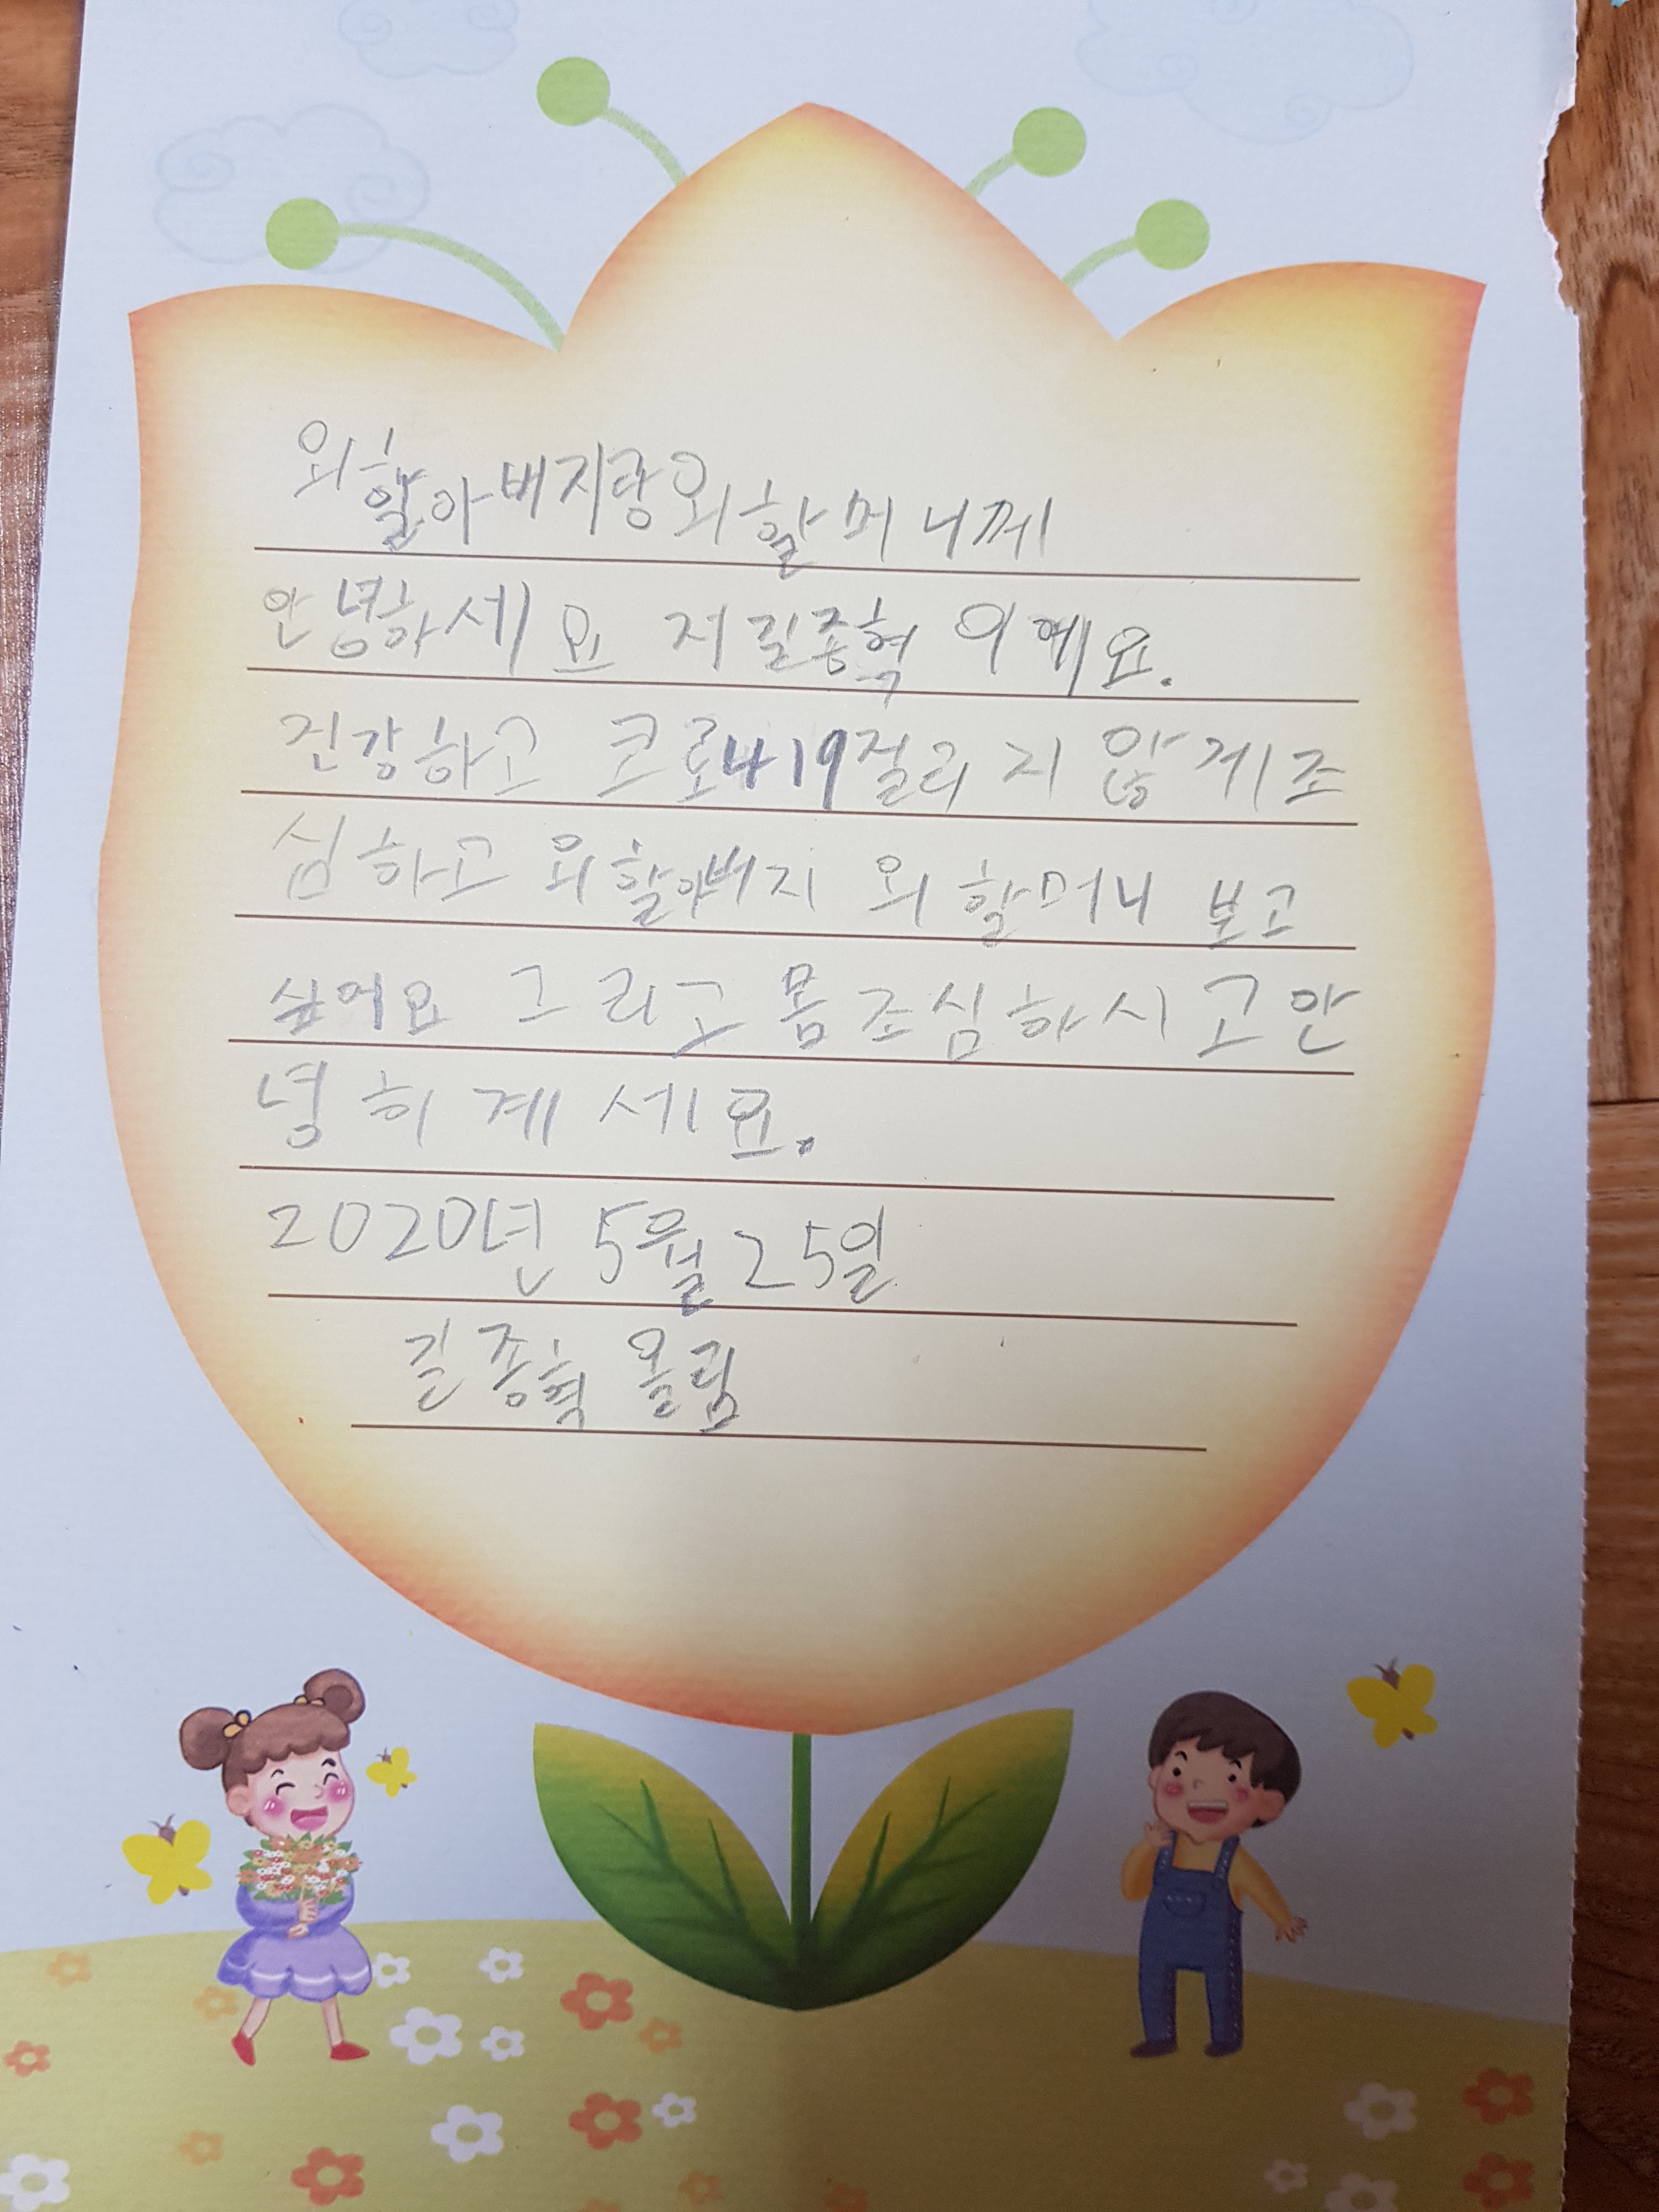 외할아버지랑외할머니께
안녕하세요 저 길종혁 이예요.
건강하고 코로나19걸리지 않게조
심하고 외할아버지 외할머니 보고
싶어요 그리고 몸조심하시고안
녕히 계세요.
2020년 5월25일
길종혁 올림